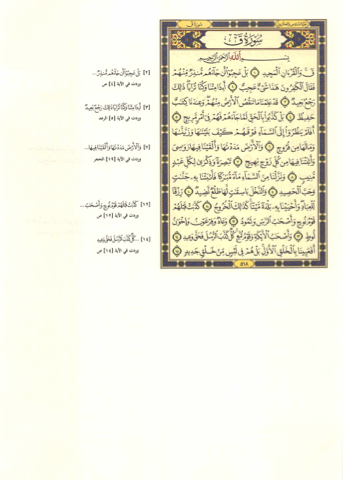 سُورَةُ قٓ
بِسْمِ ٱللَّهِ ٱلرَّحْمَٰنِ ٱلرَّحِيمِ
قٓ وَٱلْقُرْءَانِ ٱلْمَجِيدِ ١ بَلْ عَجِبُوٓا۟ أَن جَآءَهُم مُّنذِرٌ مِّنْهُمْ
فَقَالَ ٱلْكَٰفِرُونَ هَٰذَا شَىْءٌ عَجِيبٌ ٢ أَءِذَا مِتْنَا وَكُنَّا تُرَابًا ذَٰلِكَ
رَجْعٌۢ بَعِيدٌ ٣ قَدْ عَلِمْنَا مَا تَنقُصُ ٱلْأَرْضُ مِنْهُمْ وَعِندَنَا كِتَٰبٌ
حَفِيظٌۢ ٤ بَلْ كَذَّبُوا۟ بِٱلْحَقِّ لَمَّا جَآءَهُمْ فَهُمْ فِىٓ أَمْرٍ مَّرِيجٍ ٥
أَفَلَمْ يَنظُرُوٓا۟ إِلَى ٱلسَّمَآءِ فَوْقَهُمْ كَيْفَ بَنَيْنَٰهَا وَزَيَّنَّٰهَا
وَمَا لَهَا مِن فُرُوجٍ ٦ وَٱلْأَرْضَ مَدَدْنَٰهَا وَأَلْقَيْنَا فِيهَا رَوَٰسِىَ
وَأَنۢبَتْنَا فِيهَا مِن كُلِّ زَوْجٍۭ بَهِيجٍ ٧ تَبْصِرَةً وَذِكْرَىٰ لِكُلِّ عَبْدٍ
مُّنِيبٍ ٨ وَنَزَّلْنَا مِنَ ٱلسَّمَآءِ مَآءً مُّبَٰرَكًا فَأَنۢبَتْنَا بِهِۦ جَنَّٰتٍ
وَحَبَّ ٱلْحَصِيدِ ٩ وَٱلنَّخْلَ بَاسِقَٰتٍ لَّهَا طَلْعٌ نَّضِيدٌ ١٠ رِّزْقًا
لِّلْعِبَادِ وَأَحْيَيْنَا بِهِۦ بَلْدَةً مَّيْتًا كَذَٰلِكَ ٱلْخُرُوجُ ١١ كَذَّبَتْ قَبْلَهُمْ
قَوْمُ نُوحٍ وَأَصْحَٰبُ ٱلرَّسِّ وَثَمُودُ ١٢ وَعَادٌ وَفِرْعَوْنُ وَإِخْوَٰنُ
لُوطٍ ١٣ وَأَصْحَٰبُ ٱلْأَيْكَةِ وَقَوْمُ تُبَّعٍ كُلٌّ كَذَّبَ ٱلرُّسُلَ فَحَقَّ وَعِيدِ ١٤
أَفَعَيِينَا بِٱلْخَلْقِ ٱلْأَوَّلِ بَلْ هُمْ فِى لَبْسٍ مِّنْ خَلْقٍ جَدِيدٍ ١٥
٥١٨
[٢] بَلْ عَجِبُوٓا۟ أَن جَآءَهُم مُّنذِرٌ...
وردت في الآية [٤] ص
[٣] أَءِذَا مِتْنَا وَكُنَّا تُرَابًا ذَٰلِكَ رَجْعٌۢ بَعِيدٌ
وردت في الآية [٥] الرعد
[٧] وَٱلْأَرْضَ مَدَدْنَٰهَا وَأَلْقَيْنَا فِيهَا...
وردت في الآية [١٩] الحجر
[١٢] كَذَّبَتْ قَبْلَهُمْ قَوْمُ نُوحٍ وَأَصْحَٰبُ...
وردت في الآية [١٢] ص
[١٤] ...كُلٌّ كَذَّبَ ٱلرُّسُلَ فَحَقَّ وَعِيدِ
وردت في الآية [١٤] ص